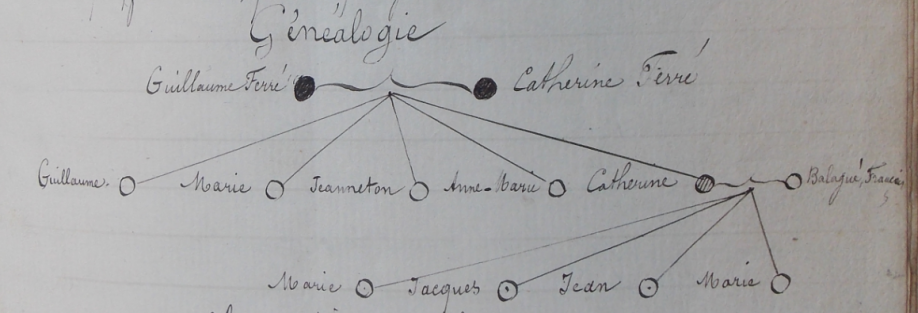 Généalogie
Guillaume Ferré Catherine Ferré
Guillaume. Marie Jeanneton Anne-Marie Catherine Balagué, François
Marie Jacques Jean Marie